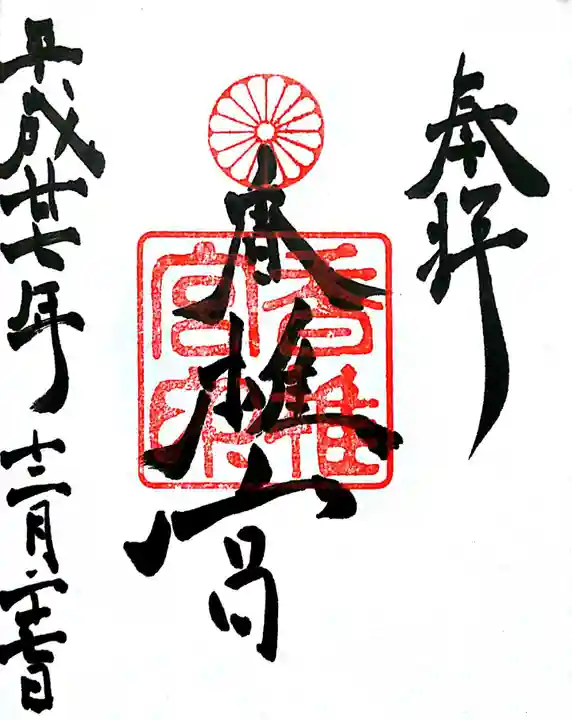 奉拝
香椎宮
香椎
宮印
平成廿七年十二月二十七日